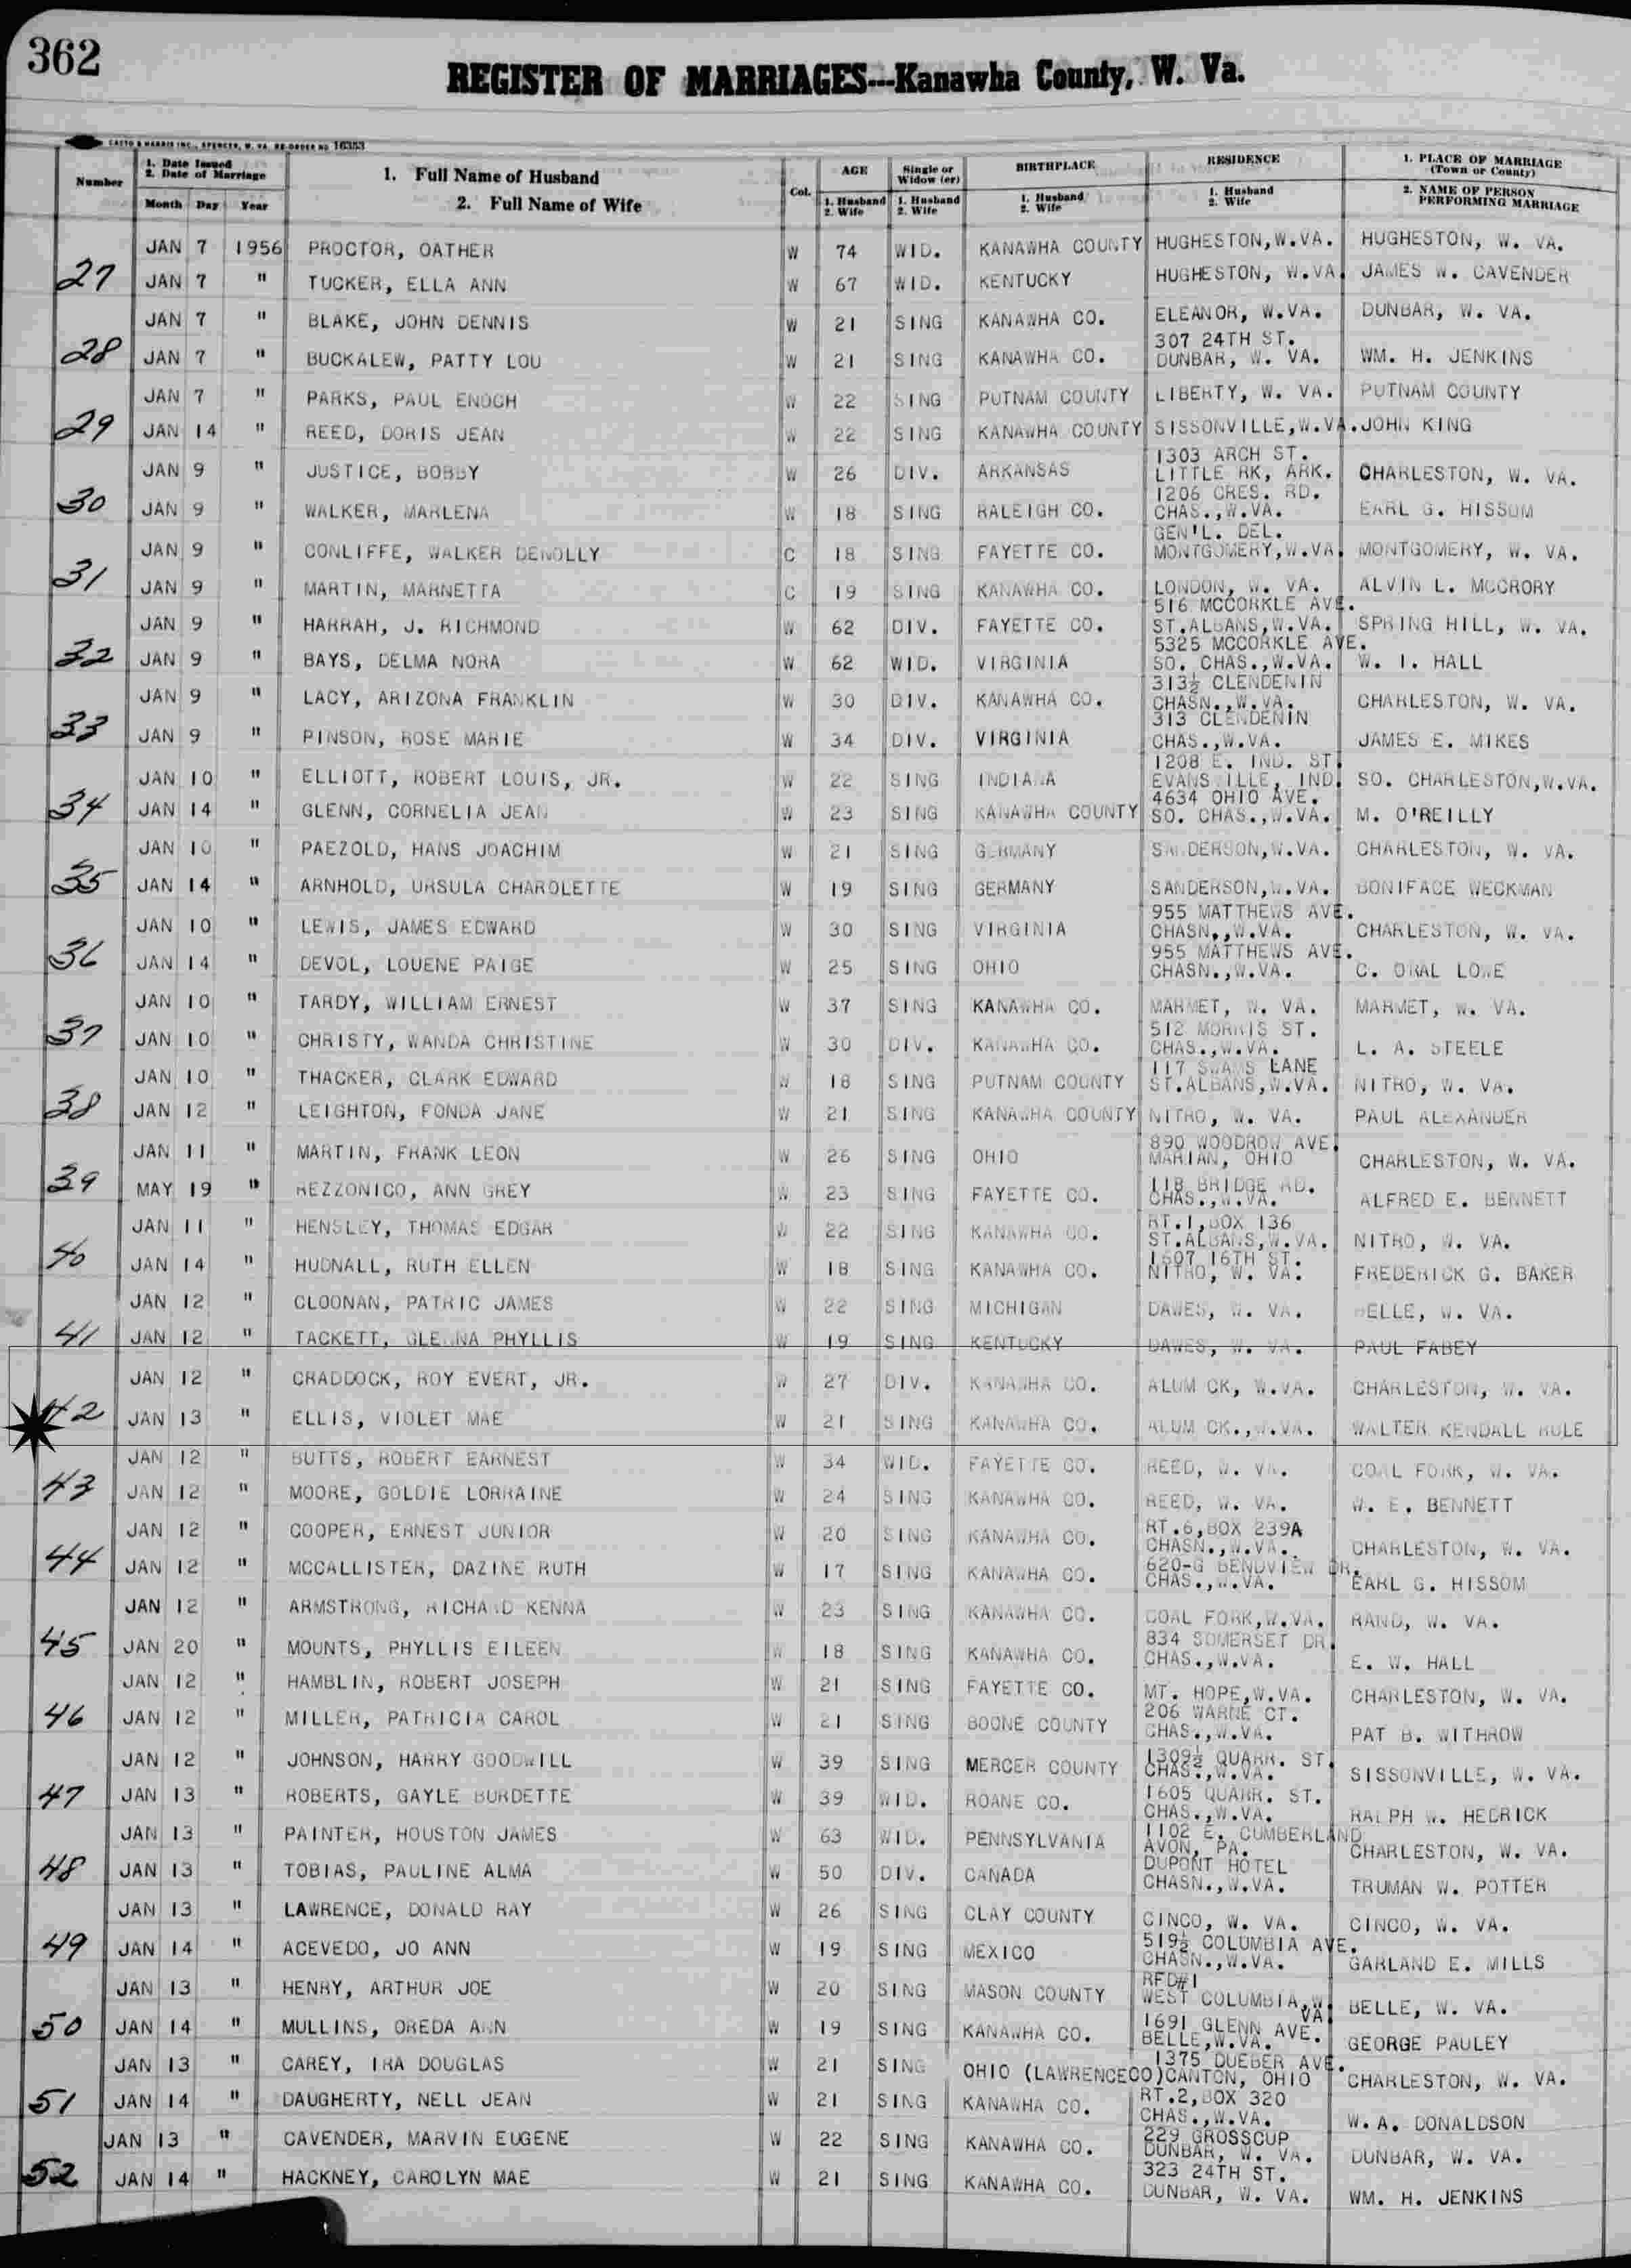 362
REGISTER OF MARRIAGES---Kanawha County, W. Va.
CASTO & HARRIS INC., SPENCER, W. VA. RE-ORDER NO. 16353
Number
1. Date Issued
2. Date of Marriage
Month Day Year
1. Full Name of Husband
2. Full Name of Wife
Col.
AGE
1. Husband
2. Wife
Single or
Widow (er)
1. Husband
2. Wife
BIRTHPLACE
1. Husband
2. Wife
RESIDENCE
1. Husband
2. Wife
1. PLACE OF MARRIAGE
(Town or County)
2. NAME OF PERSON
PERFORMING MARRIAGE
JAN 7 1956 PROCTOR, OATHER W 74 WID. KANAWHA COUNTY HUGHESTON,W.VA. HUGHESTON, W. VA.
27 JAN 7 " TUCKER, ELLA ANN W 67 WID. KENTUCKY HUGHESTON, W.VA. JAMES W. CAVENDER
JAN 7 " BLAKE, JOHN DENNIS W 21 SING KANAWHA CO. ELEANOR, W.VA. DUNBAR, W. VA.
307 24TH ST.
28 JAN 7 " BUCKALEW, PATTY LOU W 21 SING KANAWHA CO. DUNBAR, W. VA. WM. H. JENKINS
JAN 7 " PARKS, PAUL ENOCH W 22 SING PUTNAM COUNTY LIBERTY, W. VA. PUTNAM COUNTY
29 JAN 14 " REED, DORIS JEAN W 22 SING KANAWHA COUNTY SISSONVILLE,W.VA. JOHN KING
1303 ARCH ST.
JAN 9 " JUSTICE, BOBBY W 26 DIV. ARKANSAS LITTLE RK, ARK. CHARLESTON, W. VA.
1206 CRES. RD.
30 JAN 9 " WALKER, MARLENA W 18 SING RALEIGH CO. CHAS.,W.VA. EARL G. HISSOM
GEN'L. DEL.
JAN 9 " CONLIFFE, WALKER DENOLLY C 18 SING FAYETTE CO. MONTGOMERY,W.VA. MONTGOMERY, W. VA.
31 JAN 9 " MARTIN, MARNETTA C 19 SING KANAWHA CO. LONDON, W. VA. ALVIN L. MCCRORY
516 MCCORKLE AVE.
JAN 9 " HARRAH, J. RICHMOND W 62 DIV. FAYETTE CO. ST.ALBANS,W.VA. SPRING HILL, W. VA.
5325 MCCORKLE AVE.
32 JAN 9 " BAYS, DELMA NORA W 62 WID. VIRGINIA SO. CHAS.,W.VA. W. I. HALL
313½ CLENDENIN
JAN 9 " LACY, ARIZONA FRANKLIN W 30 DIV. KANAWHA CO. CHASN.,W.VA. CHARLESTON, W. VA.
313 CLENDENIN
33 JAN 9 " PINSON, ROSE MARIE W 34 DIV. VIRGINIA CHAS.,W.VA. JAMES E. MIKES
1208 E. IND. ST.
JAN 10 " ELLIOTT, ROBERT LOUIS, JR. W 22 SING INDIANA EVANSVILLE, IND. SO. CHARLESTON,W.VA.
4634 OHIO AVE.
34 JAN 14 " GLENN, CORNELIA JEAN W 23 SING KANAWHA COUNTY SO. CHAS.,W.VA. M. O'REILLY
JAN 10 " PAEZOLD, HANS JOACHIM W 21 SING GERMANY SANDERSON,W.VA. CHARLESTON, W. VA.
35 JAN 14 " ARNHOLD, URSULA CHAROLETTE W 19 SING GERMANY SANDERSON,W.VA. BONIFACE WECKMAN
955 MATTHEWS AVE.
JAN 10 " LEWIS, JAMES EDWARD W 30 SING VIRGINIA CHASN.,W.VA. CHARLESTON, W. VA.
955 MATTHEWS AVE.
36 JAN 14 " DEVOL, LOUENE PAIGE W 25 SING OHIO CHASN.,W.VA. C. ORAL LOWE
JAN 10 " TARDY, WILLIAM ERNEST W 37 SING KANAWHA CO. MARMET, W. VA. MARMET, W. VA.
512 MORRIS ST.
37 JAN 10 " CHRISTY, WANDA CHRISTINE W 30 DIV. KANAWHA CO. CHAS.,W.VA. L. A. STEELE
117 SWANS LANE
JAN 10 " THACKER, CLARK EDWARD W 18 SING PUTNAM COUNTY ST.ALBANS,W.VA. NITRO, W. VA.
38 JAN 12 " LEIGHTON, FONDA JANE W 21 SING KANAWHA COUNTY NITRO, W. VA. PAUL ALEXANDER
890 WOODROW AVE.
JAN 11 " MARTIN, FRANK LEON W 26 SING OHIO MARIAN, OHIO CHARLESTON, W. VA.
118 BRIDGE RD.
39 MAY 19 " REZZONICO, ANN GREY W 23 SING FAYETTE CO. CHAS.,W.VA. ALFRED E. BENNETT
RT.1,BOX 136
JAN 11 " HENSLEY, THOMAS EDGAR W 22 SING KANAWHA CO. ST.ALBANS,W.VA. NITRO, W. VA.
1607 16TH ST.
40 JAN 14 " HUDNALL, RUTH ELLEN W 18 SING KANAWHA CO. NITRO, W. VA. FREDERICK G. BAKER
JAN 12 " CLOONAN, PATRIC JAMES W 22 SING MICHIGAN DAWES, W. VA. BELLE, W. VA.
41 JAN 12 " TACKETT, GLENNA PHYLLIS W 19 SING KENTUCKY DAWES, W. VA. PAUL FABEY
JAN 12 " CRADDOCK, ROY EVERT, JR. W 27 DIV. KANAWHA CO. ALUM CK, W.VA. CHARLESTON, W. VA.
42 JAN 13 " ELLIS, VIOLET MAE W 21 SING KANAWHA CO. ALUM CK.,W.VA. WALTER KENDALL RULE
JAN 12 " BUTTS, ROBERT EARNEST W 34 WID. FAYETTE CO. REED, W. VA. COAL FORK, W. VA.
43 JAN 12 " MOORE, GOLDIE LORRAINE W 24 SING KANAWHA CO. REED, W. VA. W. E. BENNETT
RT.6,BOX 239A
JAN 12 " COOPER, ERNEST JUNIOR W 20 SING KANAWHA CO. CHASN.,W.VA. CHARLESTON, W. VA.
620-G BENDVIEW DR.
44 JAN 12 " MCCALLISTER, DAZINE RUTH W 17 SING KANAWHA CO. CHAS.,W.VA. EARL G. HISSOM
JAN 12 " ARMSTRONG, RICHARD KENNA W 23 SING KANAWHA CO. COAL FORK,W.VA. RAND, W. VA.
834 SOMERSET DR.
45 JAN 20 " MOUNTS, PHYLLIS EILEEN W 18 SING KANAWHA CO. CHAS.,W.VA. E. W. HALL
JAN 12 " HAMBLIN, ROBERT JOSEPH W 21 SING FAYETTE CO. MT. HOPE,W.VA. CHARLESTON, W. VA.
206 WARNE CT.
46 JAN 12 " MILLER, PATRICIA CAROL W 21 SING BOONE COUNTY CHAS.,W.VA. PAT B. WITHROW
1309½ QUARR. ST.
JAN 12 " JOHNSON, HARRY GOODWILL W 39 SING MERCER COUNTY CHAS.,W.VA. SISSONVILLE, W. VA.
1605 QUARR. ST.
47 JAN 13 " ROBERTS, GAYLE BURDETTE W 39 WID. ROANE CO. CHAS.,W.VA. RALPH W. HEDRICK
1102 E. CUMBERLAND
JAN 13 " PAINTER, HOUSTON JAMES W 63 WID. PENNSYLVANIA AVON, PA. CHARLESTON, W. VA.
DUPONT HOTEL
48 JAN 13 " TOBIAS, PAULINE ALMA W 50 DIV. CANADA CHASN.,W.VA. TRUMAN W. POTTER
JAN 13 " LAWRENCE, DONALD RAY W 26 SING CLAY COUNTY CINCO, W. VA. CINCO, W. VA.
519½ COLUMBIA AVE.
49 JAN 14 " ACEVEDO, JO ANN W 19 SING MEXICO CHASN.,W.VA. GARLAND E. MILLS
RFD#1
JAN 13 " HENRY, ARTHUR JOE W 20 SING MASON COUNTY WEST COLUMBIA,W. VA. BELLE, W. VA.
1691 GLENN AVE.
50 JAN 14 " MULLINS, OREDA ANN W 19 SING KANAWHA CO. BELLE,W.VA. GEORGE PAULEY
1375 DUEBER AVE.
JAN 13 " CAREY, IRA DOUGLAS W 21 SING OHIO (LAWRENCECO) CANTON, OHIO CHARLESTON, W. VA.
RT.2,BOX 320
51 JAN 14 " DAUGHERTY, NELL JEAN W 21 SING KANAWHA CO. CHAS.,W.VA. W. A. DONALDSON
229 GROSSCUP
JAN 13 " CAVENDER, MARVIN EUGENE W 22 SING KANAWHA CO. DUNBAR, W. VA. DUNBAR, W. VA.
323 24TH ST.
52 JAN 14 " HACKNEY, CAROLYN MAE W 21 SING KANAWHA CO. DUNBAR, W. VA. WM. H. JENKINS